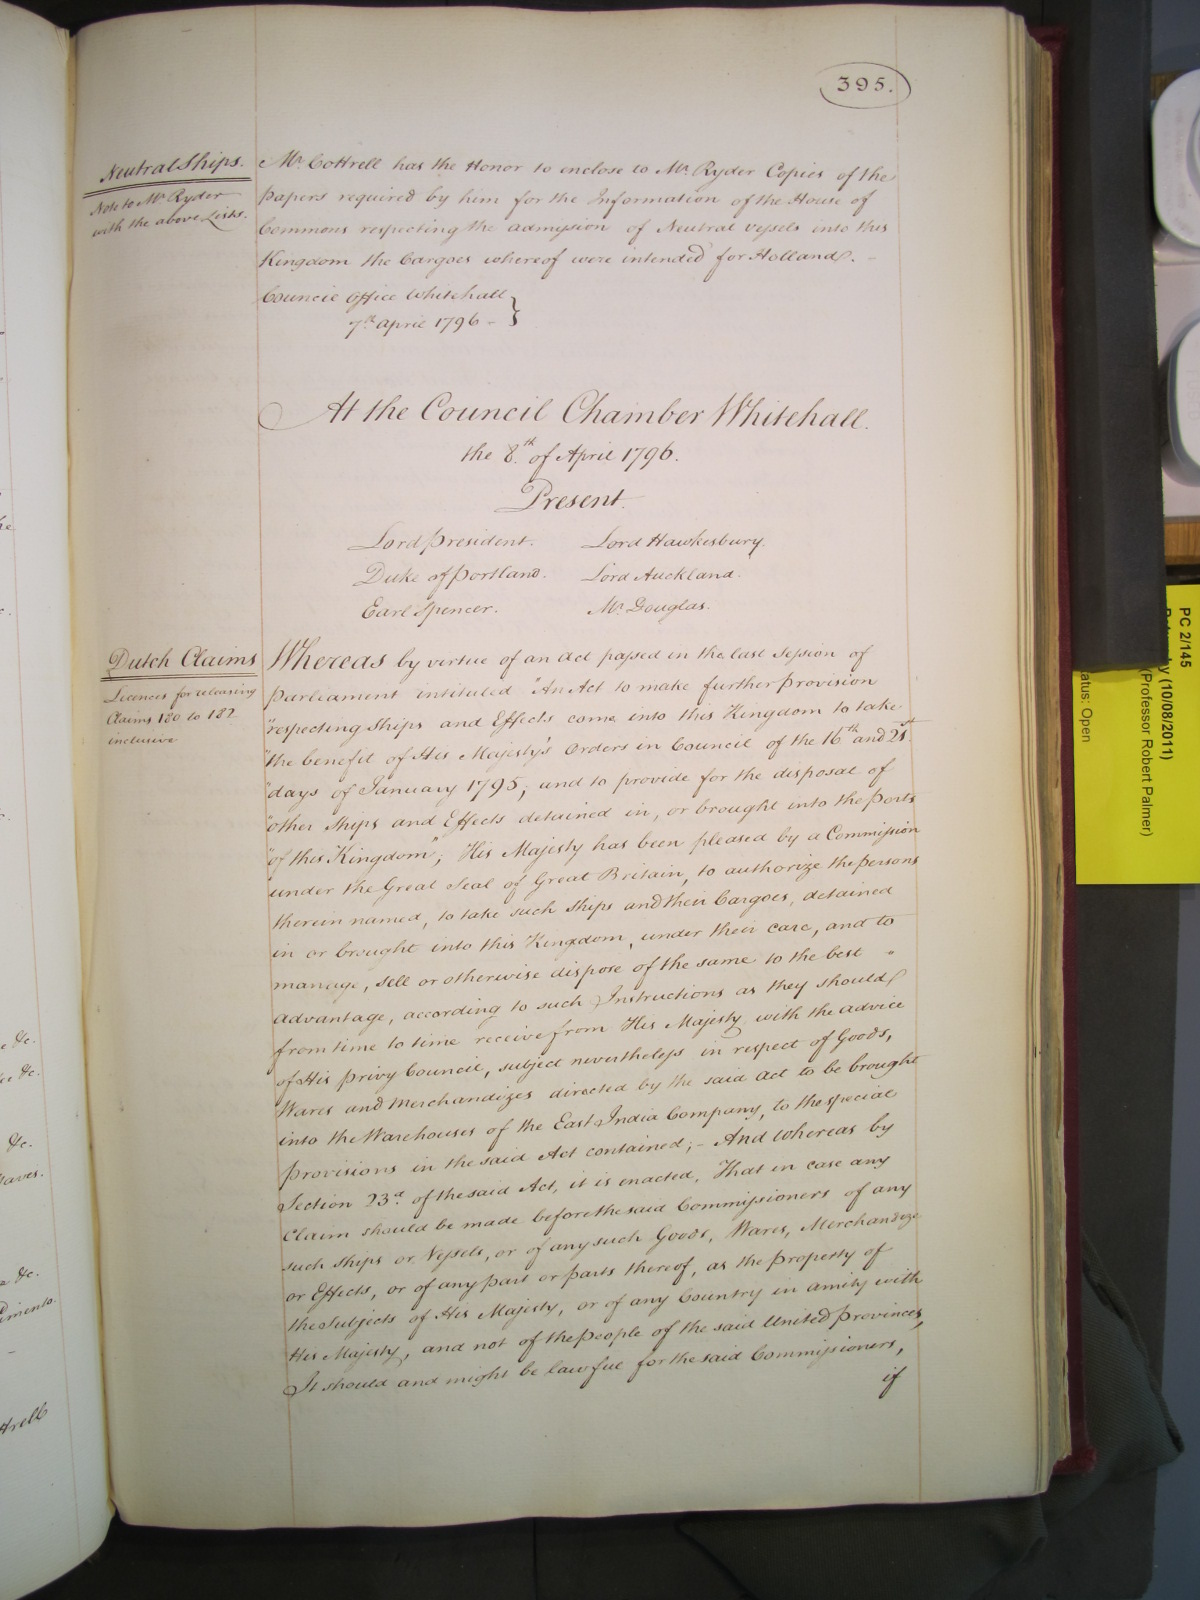 395.
Neutral Ships.
Note to Mr. Ryder
with the above Lists.
Mr. Cottrell has the Honor to enclose to Mr. Ryder Copies of the
Papers required by him for the Information of the House of
Commons respecting the admission of Neutral vessels into this
Kingdom the Cargoes whereof were intended for Holland. -
Council Office Whitehall
7th April 1796 -
At the Council Chamber Whitehall.
the 8th of April 1796.
Present.
Lord President. Lord Hawkesbury.
Duke of Portland. Lord Auckland.
Earl Spencer. Mr. Douglas.
Dutch Claims
Licences for releasing
Claims 180 to 187
inclusive
Whereas by virtue of an Act passed in the last Session of
Parliament intituled "An Act to make further Provision
"respecting Ships and Effects come into this Kingdom to take
"the benefit of His Majesty's Orders in Council of the 16th and 21st
"days of January 1795, and to provide for the disposal of
"other Ships and Effects detained in, or brought into the Ports
"of this Kingdom", His Majesty has been pleased by a Commission
under the Great Seal of Great Britain, to authorize the Persons
therein named, to take such Ships and their Cargoes, detained
in or brought into this Kingdom, under their care, and to
manage, sell or otherwise dispose of the same to the best "
advantage, according to such Instructions as they should
from time to time receive from His Majesty with the advice
of His Privy Council, subject nevertheless in respect of Goods,
Wares and Merchandizes directed by the said Act to be brought
into the Warehouses of the East India Company, to the special
provisions in the said Act contained; - And whereas by
Section 23d. of the said Act, it is enacted, That in case any
Claim should be made before the said Commissioners of any
such Ships or Vessels, or of any such Goods, Wares, Merchandize
or Effects, or of any part or parts thereof, as the Property of
the Subjects of His Majesty, or of any Country in amity with
His Majesty, and not of the People of the said United Provinces,
It should and might be lawful for the said Commissioners,
if
&c.
&c.
&c.
&c.
PC 2/145
(10/08/2011)
(Professor Robert Palmer)
atus: Open